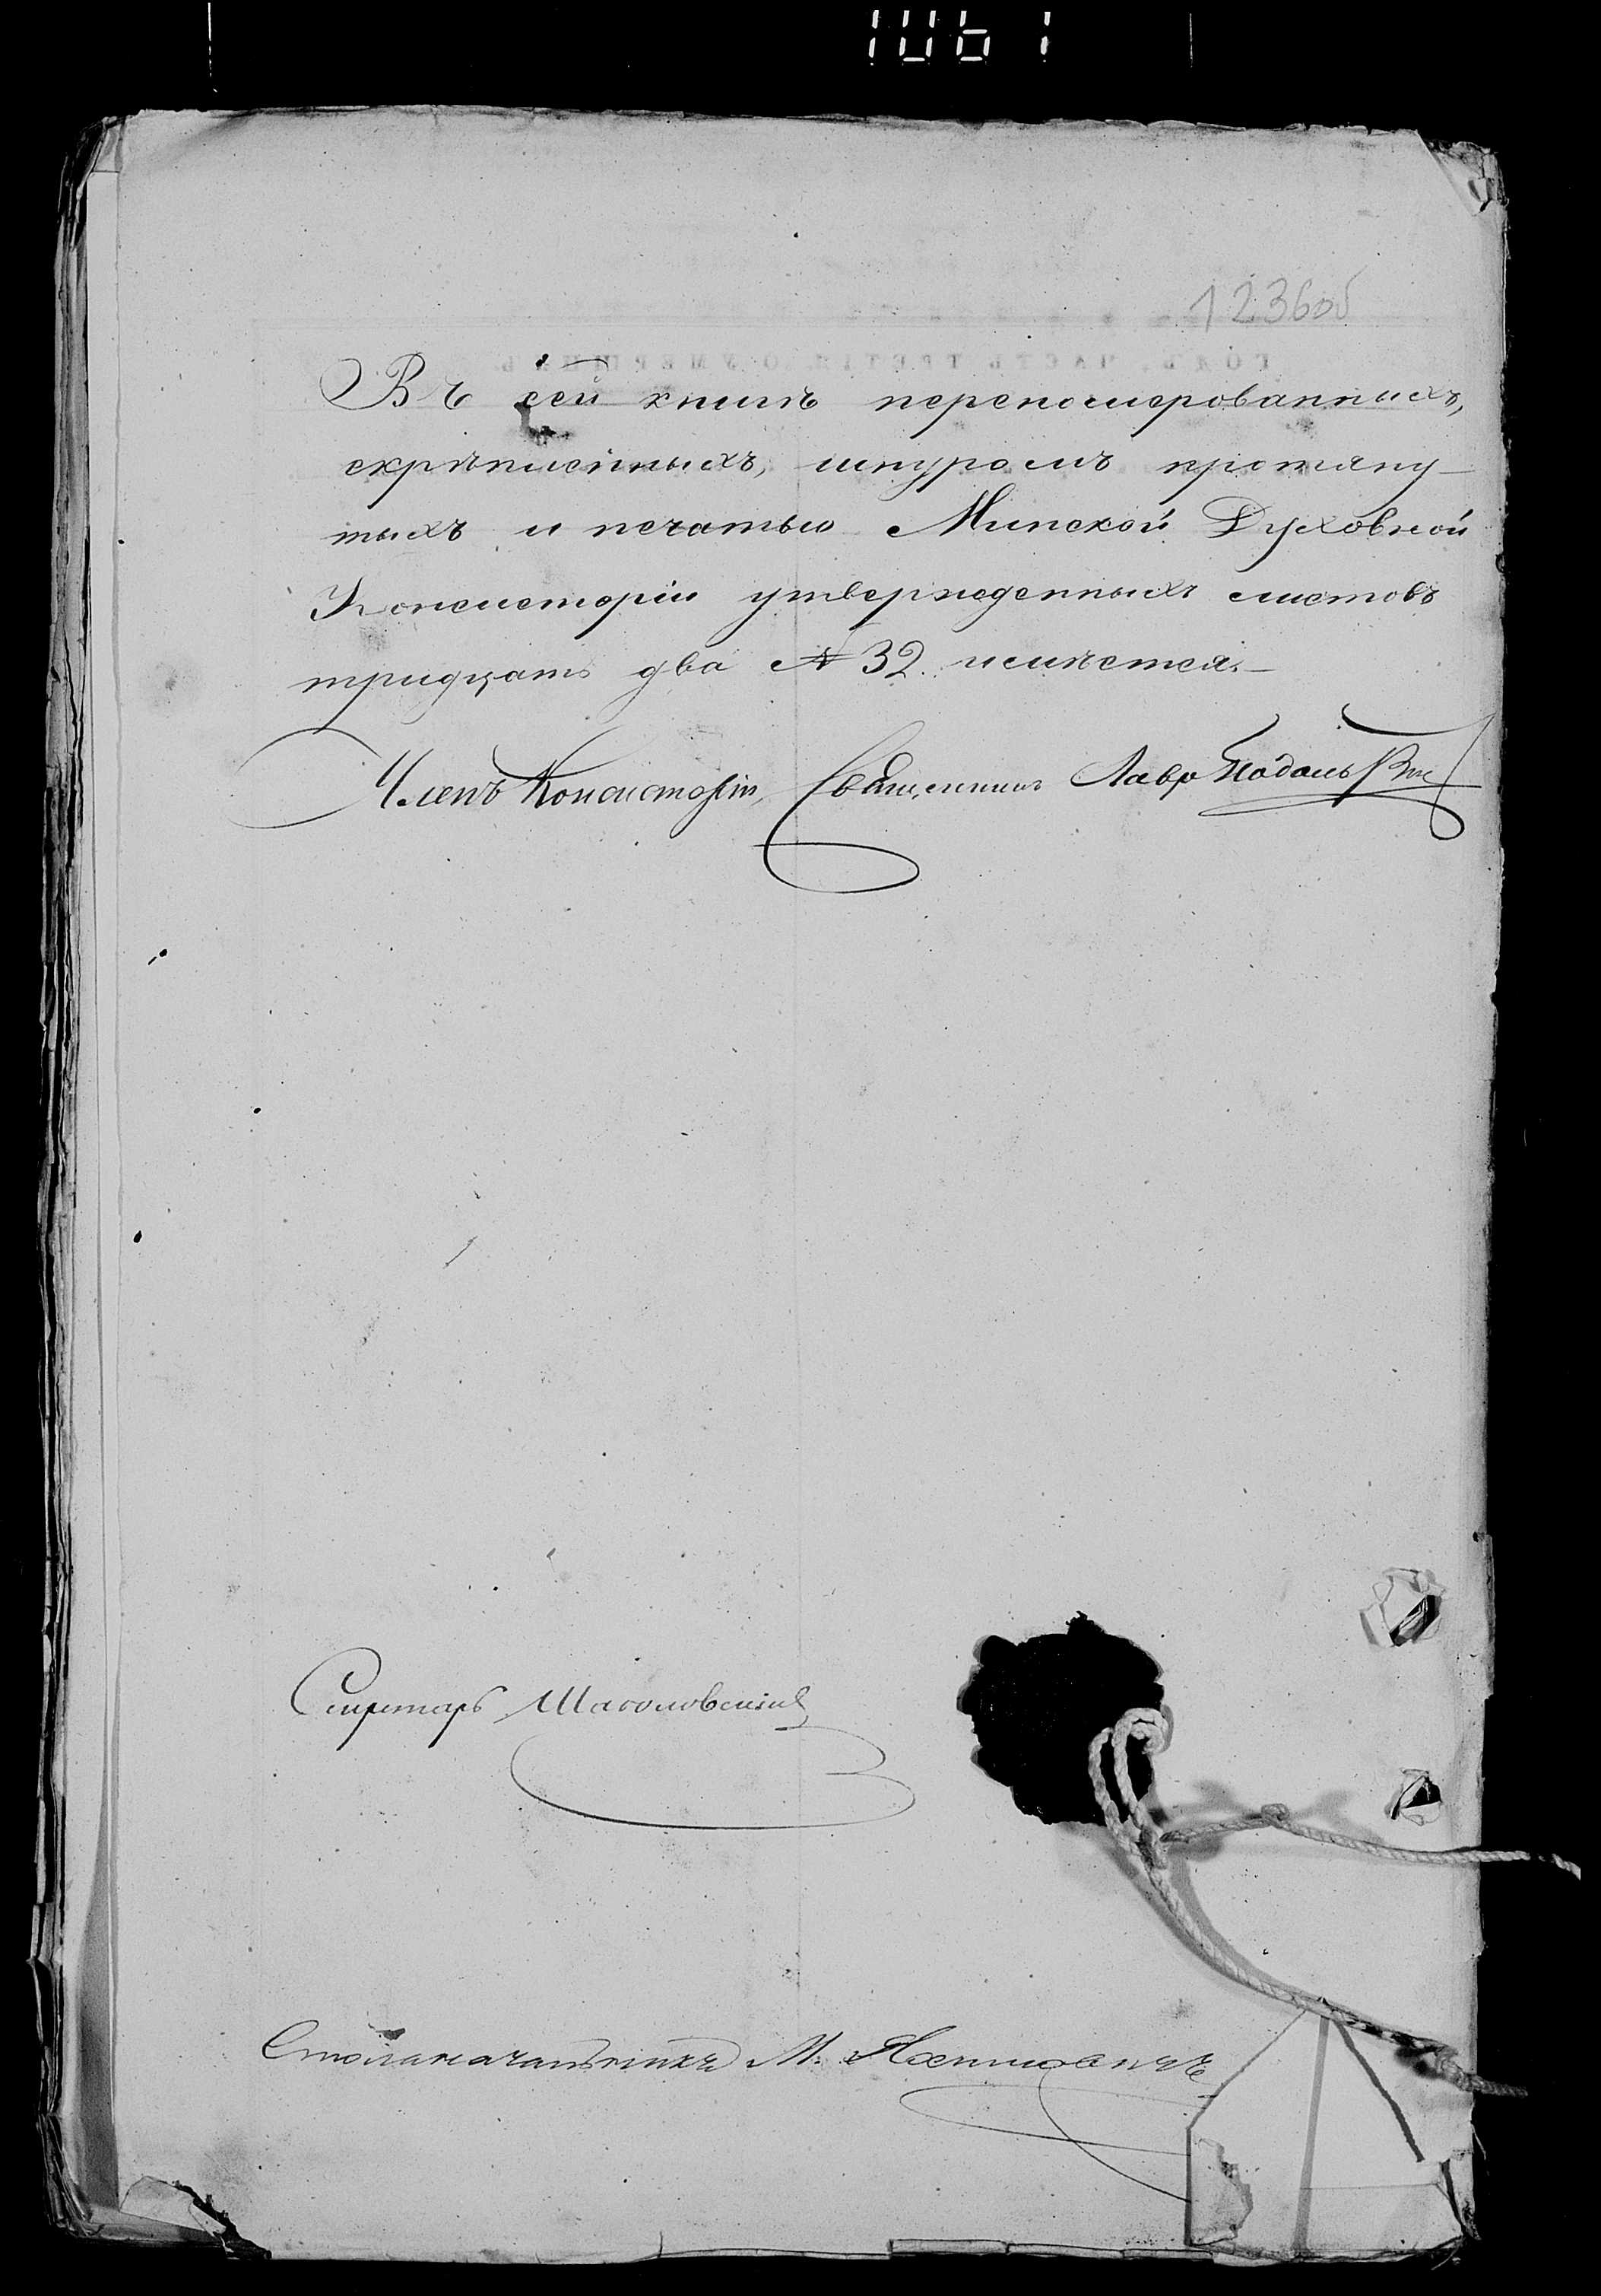 1236об
Въ сей книгѣ переномерованныхъ,
скрѣпленныхъ, шнуромъ протяну-
тыхъ и печатью Минской Духовной
Консисторіи утвержденныхъ листовъ
тридцать два № 32. имѣется.
Членъ Консисторіи, Священникъ Лавр
Секретарь
Столоначальникъ М.